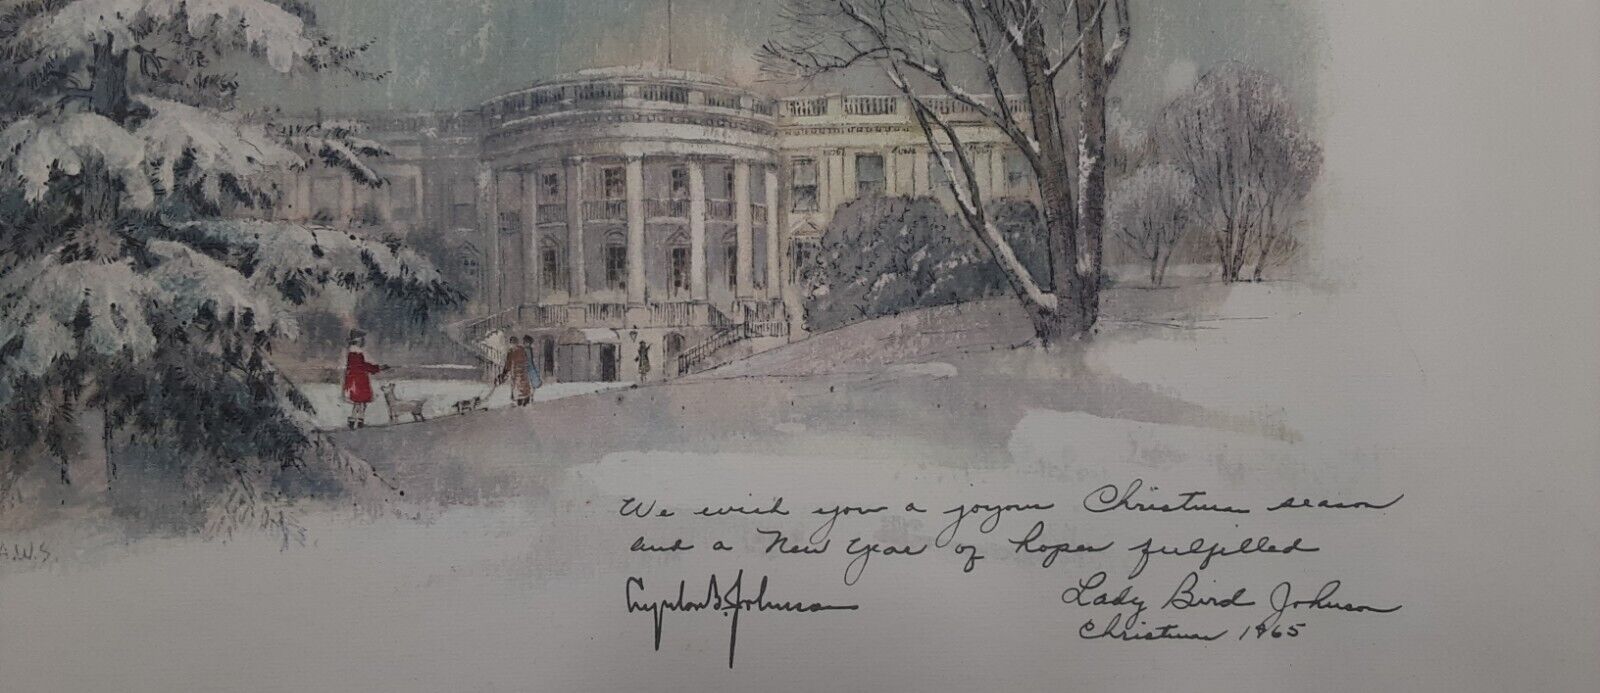 We wish you a joyous Christmas season
and a New Year of hopes fulfilled
Lyndon B. Johnson
Lady Bird Johnson
Christmas 1965
A.W.S.